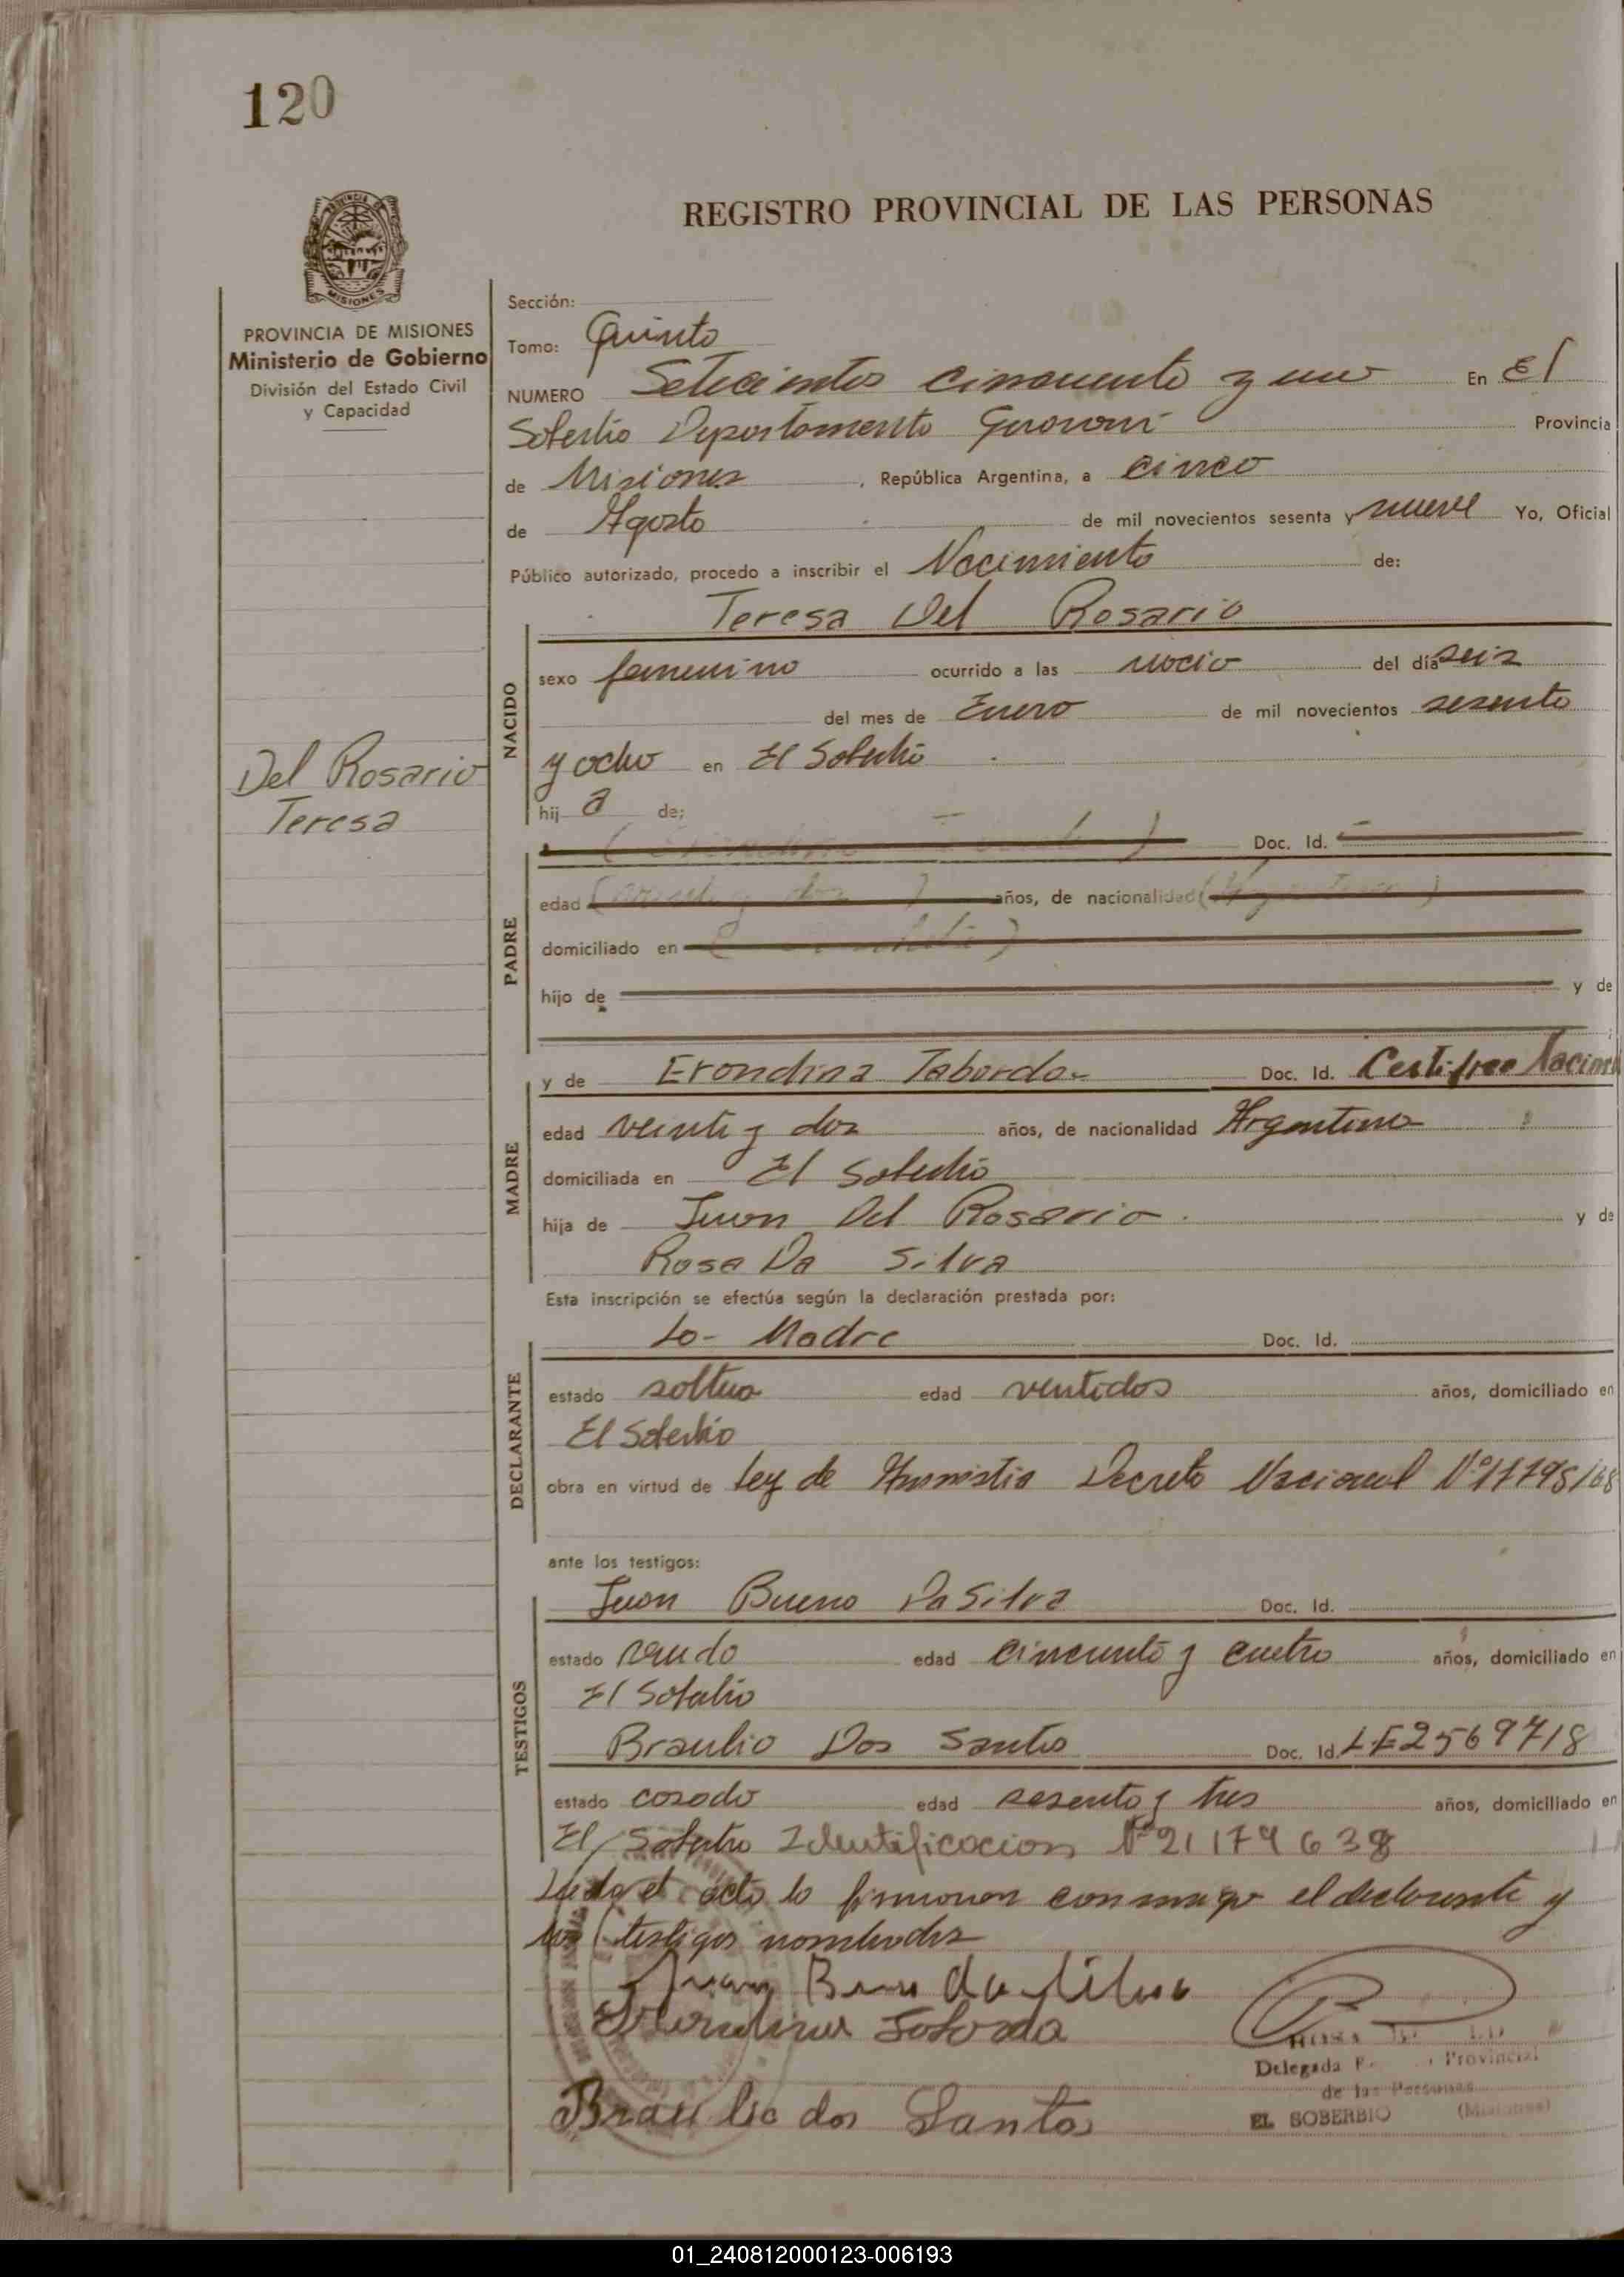 120
REGISTRO PROVINCIAL DE LAS PERSONAS
MISIONES
PROVINCIA DE MISIONES
Ministerio de Gobierno
División del Estado Civil
y Capacidad
Sección:
Tomo: Quinto
NUMERO Setecientos cincuenta y uno En El
Soberbio Departamento Guarani Provincia
de Misiones, República Argentina, a cinco
de Agosto de mil novecientos sesenta y nueve Yo, Oficial
Público autorizado, procedo a inscribir el Nacimiento de:
Teresa Del Rosario
NACIDO
sexo femenino ocurrido a las del día seis
del mes de Enero de mil novecientos sesenta
y ocho en El Soberbio
hij a de:
Del Rosario
Teresa
PADRE
Doc. Id.
edad años, de nacionalidad
domiciliado en
hijo de y de
MADRE
y de Erondina Taborda Doc. Id. Nacim
edad veinte y dos años, de nacionalidad Argentina
domiciliada en El Soberbio
hija de Juan Del Rosario y de
Rosa Da Silva
Esta inscripción se efectúa según la declaración prestada por:
DECLARANTE
La Madre Doc. Id.
estado soltera edad ventidos años, domiciliado en
El Soberbio
obra en virtud de Ley de Amnistia Decreto Nacional Nº 17795/68
ante los testigos:
TESTIGOS
Juan Bueno Da Silva Doc. Id.
estado edad cincuenta y cuatro años, domiciliado en
El Soberbio
Braulio Dos Santos Doc. Id. LE2569718
estado casado edad sesenta y tres años, domiciliado en
El Soberbio Identificacion Nº 21179638
Leida el acta la firmaron conmigo el declarante y
los testigos nombrados
Juan Bueno da Silva
Braulio dos Santos
Delegada Provincial
de las Personas
EL SOBERBIO (Misiones)
01_240812000123-006193